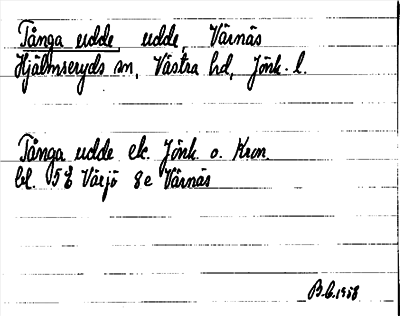 Tånga udde, udde, Värnäs
Hjälmseryds sn, Västra hd, Jönk. l.
Tånga udde ek. Jönk. o. Kron.
bl. 5E Växjö 8e Värnäs
B.C. 1958